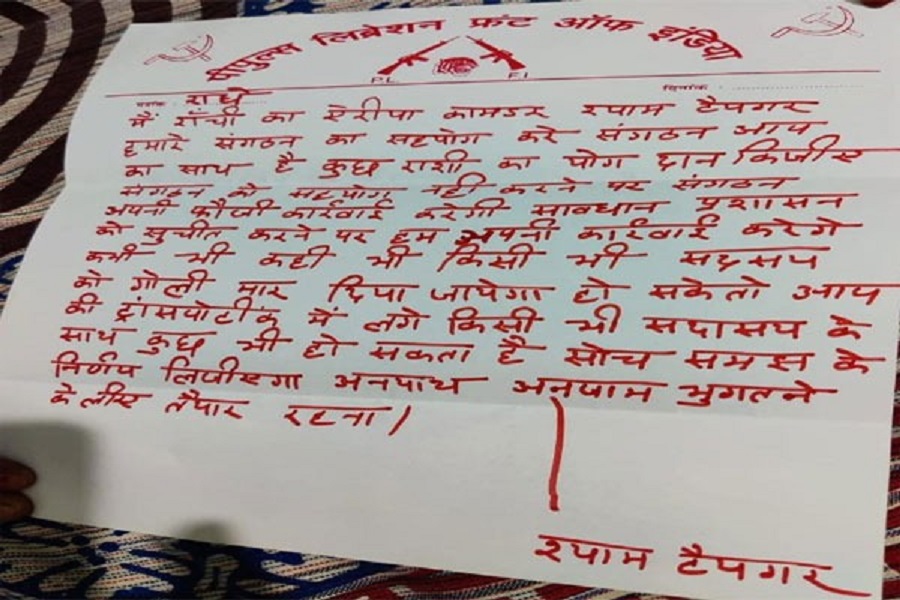 पीपुल्स लिबरेशन फ्रंट ऑफ इंडिया
PL FI
दिनांक :
राधे
मैं राँची का ऐरीया कामण्डर श्याम टैपगर
हमारे संगठन का सहयोग करे संगठन आप
का साथ है कुछ राशी का योग दान किजीए
संगठन को सहयोग नही करने पर संगठन
अपनी फौजी कार्रवाई करेगी सावधान प्रशासन
को सुचीत करने पर हम अपनी कार्रवाई करेगे
कभी भी कही भी किसी भी सदसय
को गोली मार दिया जायेगा हो सकेतो आप
की ट्रांसपोटींक में लगे किसी भी सदासय के
साथ कुछ भी हो सकता है सोच समझ के
निर्णय लिजीएगा अनयाथ अनजाम भुगतने
के लीए तैयार रहना।
श्याम टैपगर